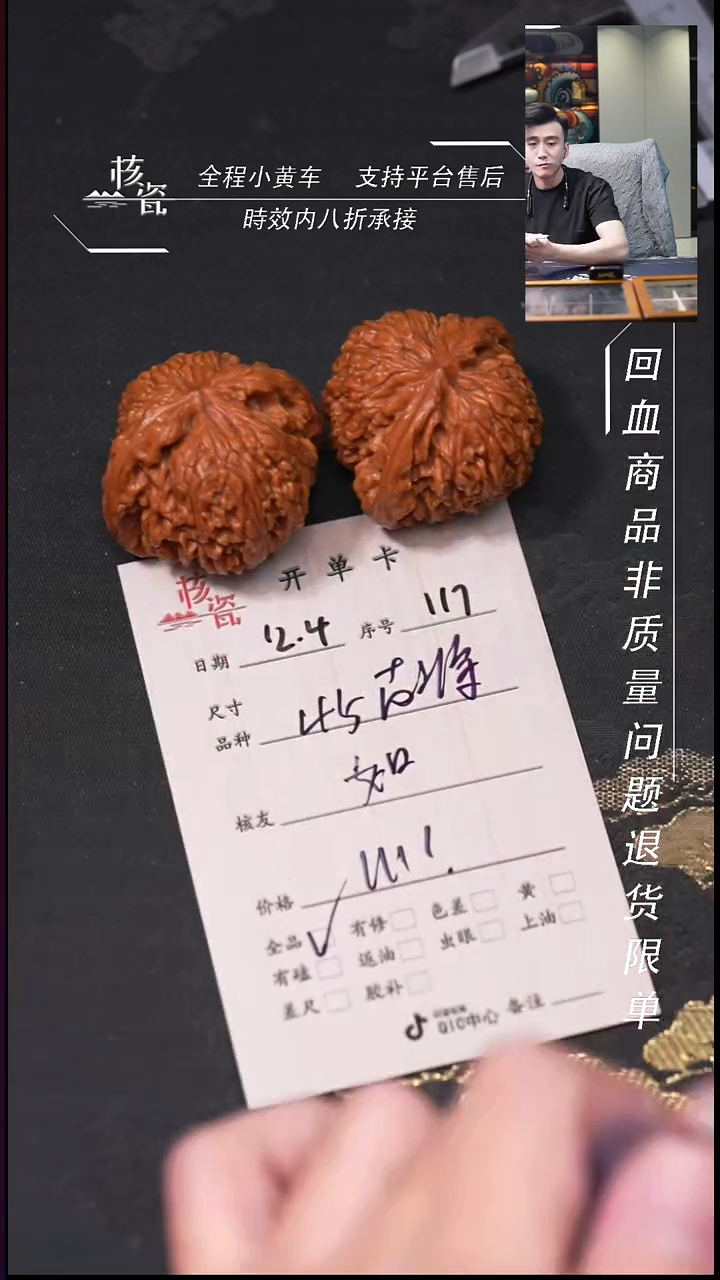 核瓷
全程小黄车 支持平台售后
時效内八折承接
回血商品非质量问题退货限单
核瓷
开单卡
日期 12.4 序号 117
尺寸
品种 45
核友
价格
全品 有修 色差 黄
有磕 返油 虫眼 上油
差尺 胶补
QIC中心 备注